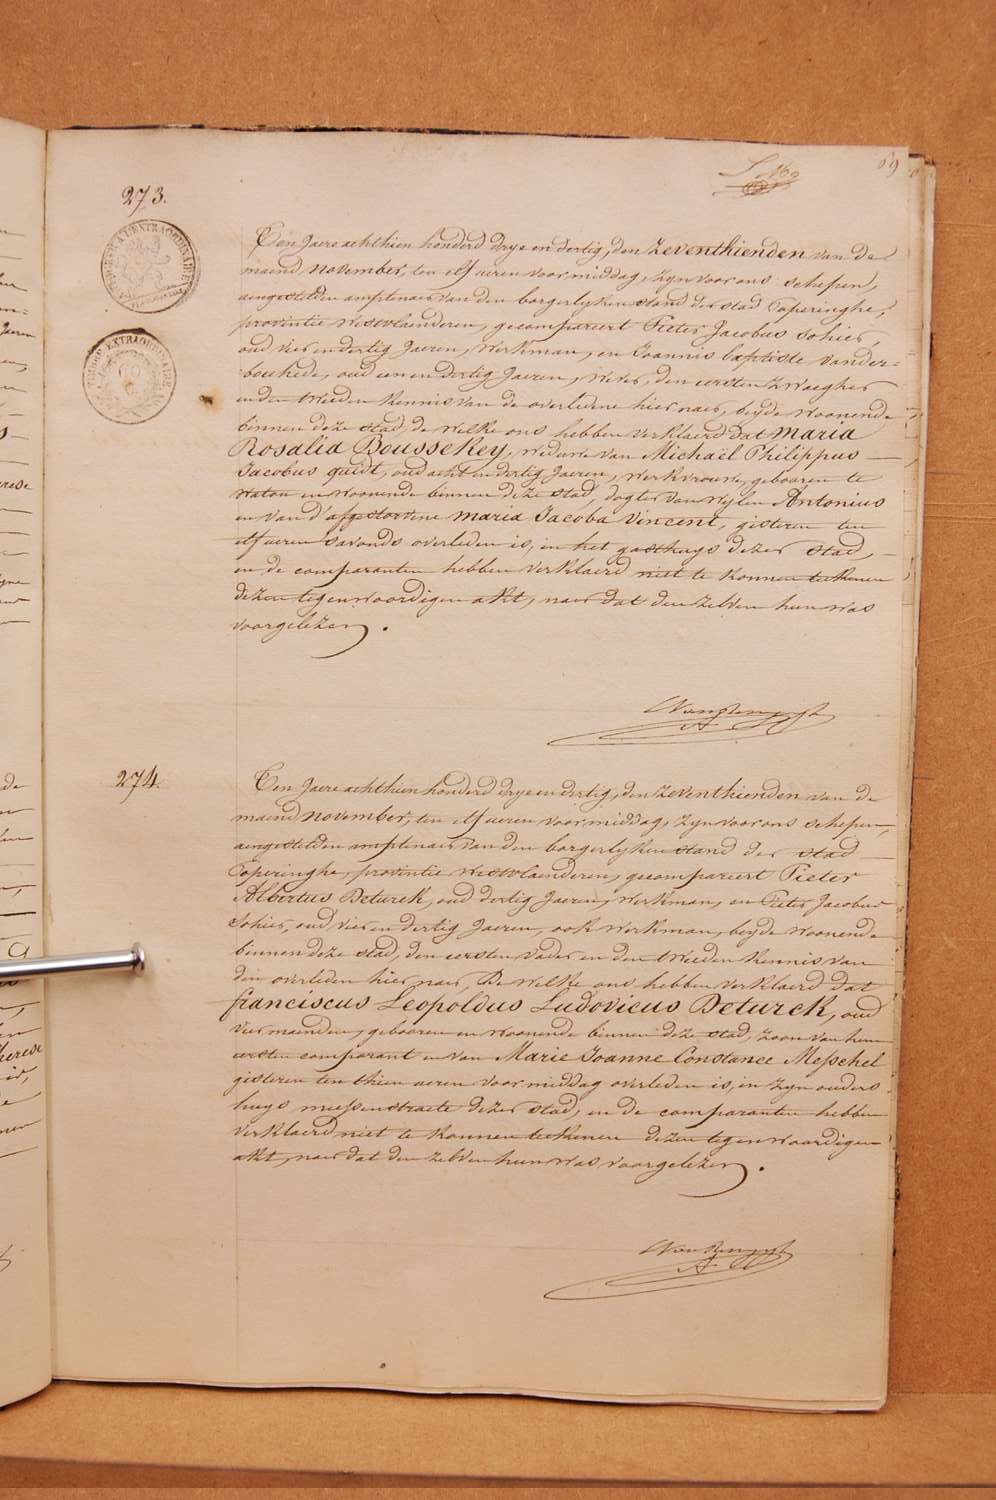 69
273.
TIMBRE EXTRAORDINAIRE
Ten Jaere achthien honderd drye en dertig, den zeventhienden van de
maend november, ten elf ueren voormiddag, zyn voor ons schepen,
aengestelden amptenaer van den borgerlyken stand der stad Poperinghe,
provintie Westvlaenderen, gecompareert Pieter Jacobus Sohier,
oud vier en dertig Jaeren, Werkman, en Joannis Baptiste Vander=
bouhede, oud een en dertig Jaeren, Wever, den eersten Zwaegher
en den tweeden kennis van de overledene hier naer, beyde woonende
binnen deze stad, de welke ons hebben verklaerd dat Maria
Rosalia Boussekey, weduwe van Michaël Philippus
Jacobus quidt, oud acht en dertig Jaeren, Werkvrouw, gebooren te
Watou en woonende binnen deze stad, dogter van wylen Antonius
en van d'afgestorvene Maria Jacoba Vincent, gisteren ten
elf ueren savonds overleden is, in het gasthuys dezer stad,
en de comparanten hebben verklaerd niet te konnen teekenen
dezen tegenwoordigen akt, naer dat den zelven hun was
voorgelezen.
274.
Ten Jaere achthien honderd drye en dertig, den zeventhienden van de
maend november, ten elf ueren voormiddag, zyn voor ons schepen,
aengestelden amptenaer van den borgerlyken stand der stad
Poperinghe, provintie Westvlaenderen, gecompareert Pieter
Albertus Deturck, oud dertig Jaeren, Werkman, en Pieter Jacobus
Sohier, oud vier en dertig Jaeren, ook Werkman, beyde woonende
binnen deze stad, den eersten vader en den tweeden kennis van
den overleden hier naer, De welke ons hebben verklaerd dat
franciscus Leopoldus Ludovicus Deturck, oud
vier maenden, gebooren en woonende binnen deze stad, zoon van hem
eersten comparant en van Marie Joanne Constance Messchel
gisteren ten thien ueren voormiddag overleden is, in zyn ouders
huys meessenstraete dezer stad, en de comparanten hebben
verklaerd niet te konnen teekenen dezen tegenwoordigen
akt, naer dat den zelven hun was voorgelezen.